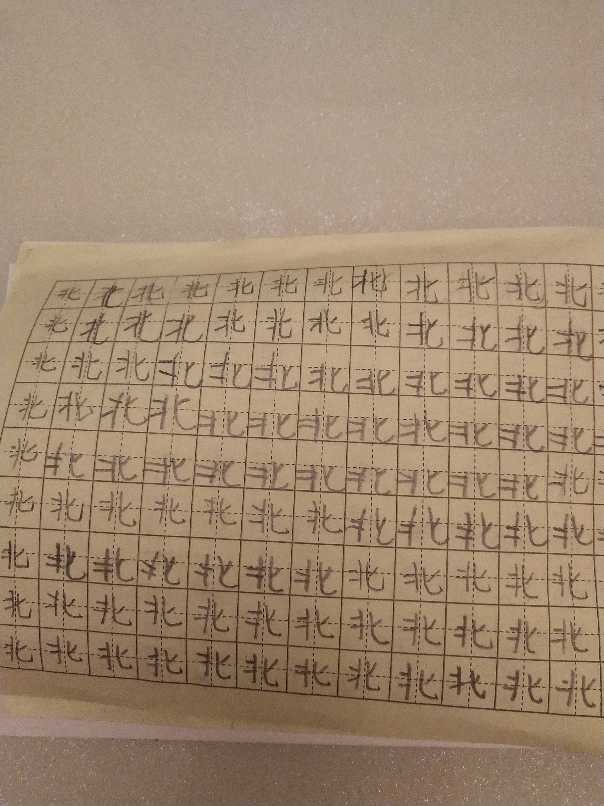 北北北北北北北北北北北北
北北北北北北北北北北北北
北北北北北北北北北北北北
北北北北北北北北北北北北
北北北北北北北北北北北北
北北北北北北北北北北北北
北北北北北北北北北北北北
北北北北北北北北北北北北
北北北北北北北北北北北北